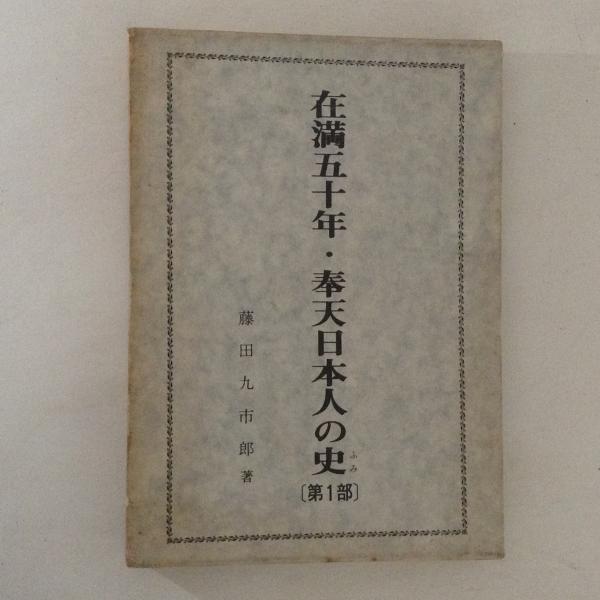 在満五十年・奉天日本人の史
ふみ
〔第1部〕
藤田九市郎著